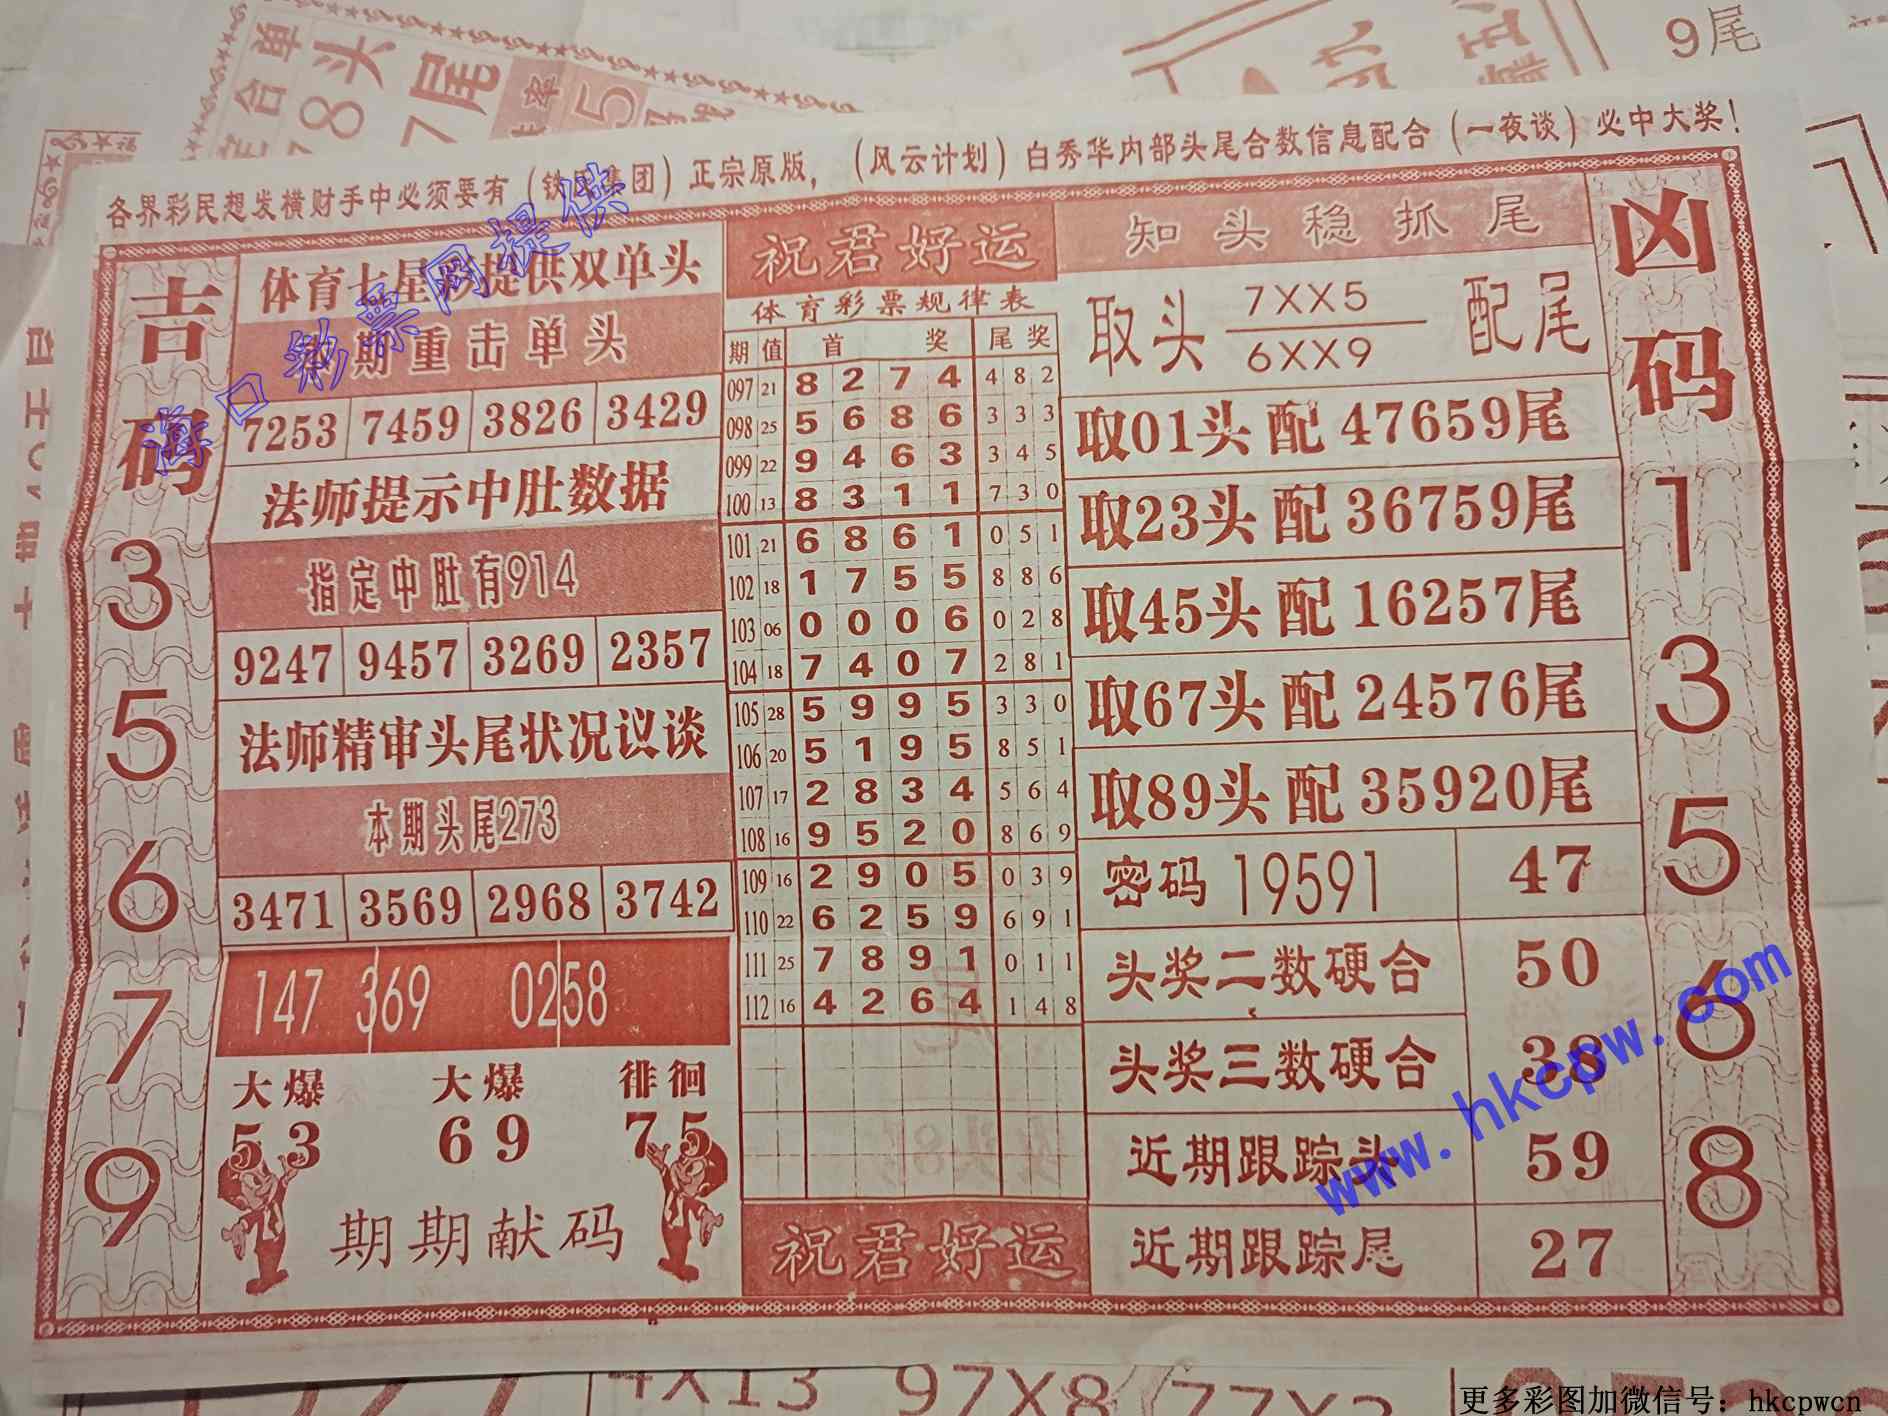 各界彩民想发横财手中必须要有（铁风集团）正宗原版，（风云计划）白秀华内部头尾合数信息配合（一夜谈）必中大奖！
吉码
3
5
6
7
9
体育七星彩提供双单头
期期重击单头
7253 7459 3826 3429
法师提示中肚数据
指定中肚有914
9247 9457 3269 2357
法师精审头尾状况议谈
本期头尾273
3471 3569 2968 3742
147 369 0258
大爆 大爆 徘徊
53 69 75
期期献码
祝君好运
体育彩票规律表
期 值 首 奖 尾 奖
097 21 8 2 7 4 4 8 2
098 25 5 6 8 6 3 3 3
099 22 9 4 6 3 3 4 5
100 13 8 3 1 1 7 3 0
101 21 6 8 6 1 0 5 1
102 18 1 7 5 5 8 8 6
103 06 0 0 0 6 0 2 8
104 18 7 4 0 7 2 8 1
105 28 5 9 9 5 3 3 0
106 20 5 1 9 5 8 5 1
107 17 2 8 3 4 5 6 4
108 16 9 5 2 0 8 6 9
109 16 2 9 0 5 0 3 9
110 22 6 2 5 9 6 9 1
111 25 7 8 9 1 0 1 1
112 16 4 2 6 4 1 4 8
祝君好运
知头稳抓尾
取头 7XX5 配尾
6XX9
取01头 配 47659尾
取23头 配 36759尾
取45头 配 16257尾
取67头 配 24576尾
取89头 配 35920尾
密码 19591 47
头奖二数硬合 50
头奖三数硬合 38
近期跟踪头 59
近期跟踪尾 27
凶码
1
3
5
6
8
海口彩票网提供
www.hkcpw.com
9尾
8头
7尾
4X13 97X8 77X3
更多彩图加微信号：hkcpwcn